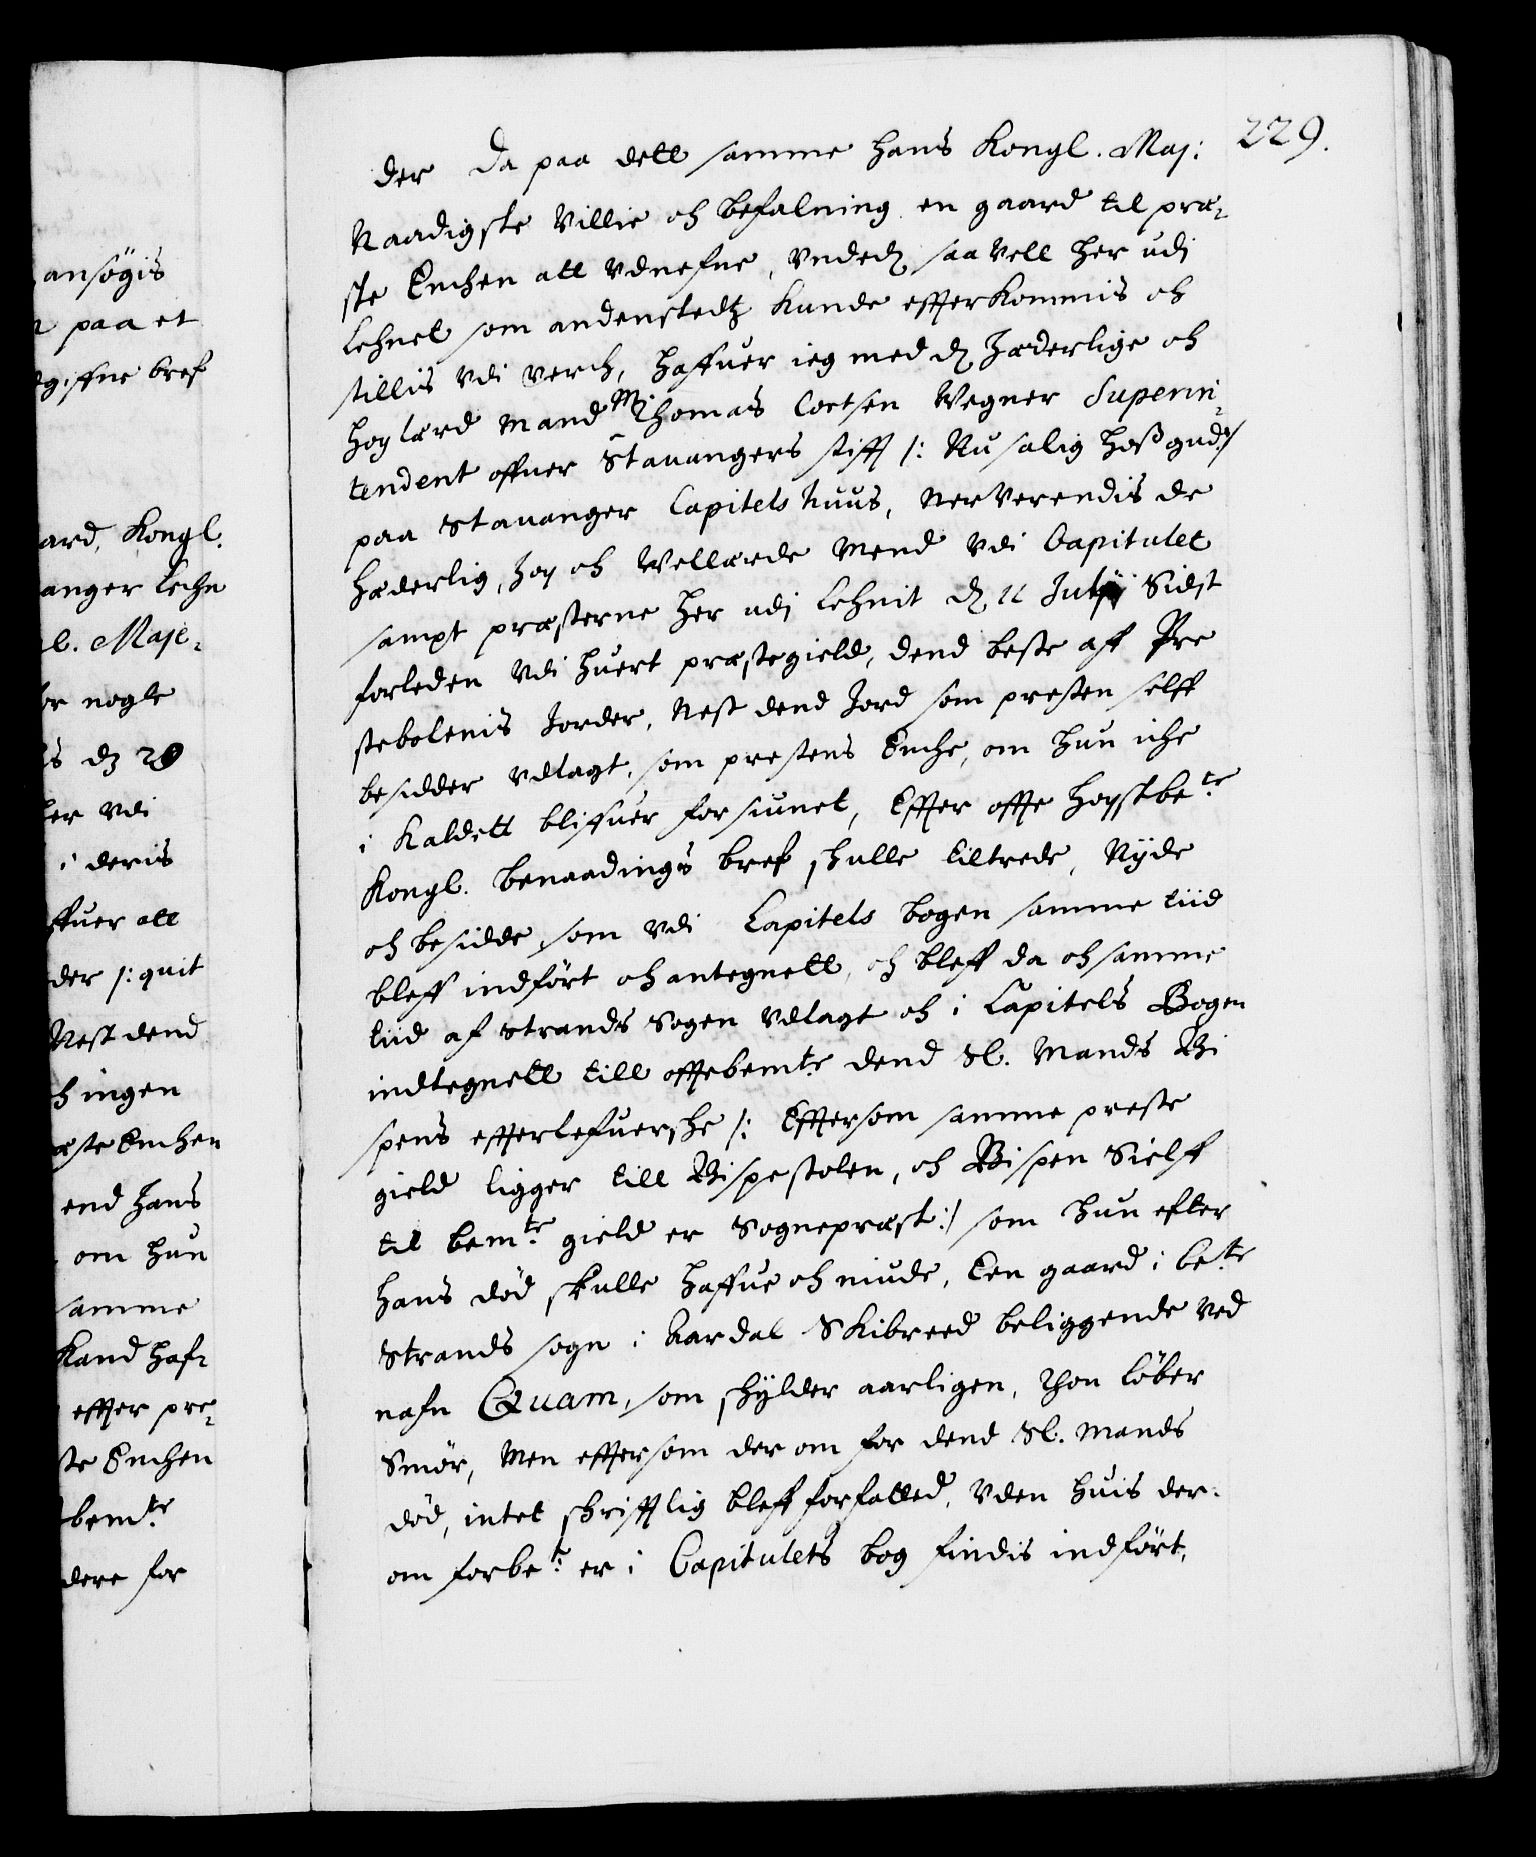 ansøgis
paa et
giffne bref
ard, Kongl.
anger Lehn
l. Maje-
or nogle
s dz 29
er vdi
i deris
ffuer att
der /: quit
Nest dend
h ingen
æste Encher
end hans
om hun
samme
kand haf-
effter pre-
ste Enchen
bemte
dere for
229.
der da paa dett samme hans Kongl. Maj:
Naadigste Villie och befalning en gaard til præ-
ste Enchen att vdnefne, vnded saa vell her udj
Lehnet som andenstedtz kunde effterkommis och
stillis vdi verch, haffuer ieg med dz hæderlige och
høylærd mand Mr Thomas Cortsen Wegner Superin-
tendent offuer Stauangers stifft /: Nu salig hoß gud:/
paa Stauanger Capitels huus, nerverendis de
hæderlig, høy och wellærde mend vdi Capitulet
sampt præsterne her udj Lehnit dz 11 Julij Sidst
forleden vdi huert præstegield, dend beste aff Pre
stebolenis Jorder, nest dend Jord som presten selff
besidder vdlagt, som prestens Enche, om hun iche
i Kaldett bliffuer forsiunet, Effter offte høystbete
Kongl. benaadings bref shulle tiltrede, Nyde
och besidde, som vdi Capitels bogen samme tiid
bleff indført och antegnett, och bleff da och samme
tiid af Strands Sogen vdlagt och i Capitels Bogen
indtegnett till offtebemte dend Sl. Mands Bi
spens effterlefuershe /: Efftersom samme preste
gield ligger till Bispestolen, och Bispen Sielff
til bemte gield er Sognepræst:/ som hun efter
hans død skulle haffue och niude, Een gaard i bete
Strands sogn i Aardal Skibreed beliggende ved
nafn Quam, som shylder aarligen, Thou løber
Smør, Men efftersom der om for dend Sl. Mands
død, intet shrifftlig bleff forfatted, vden huis der-
om forbet er i Capitulets bog findis indført,